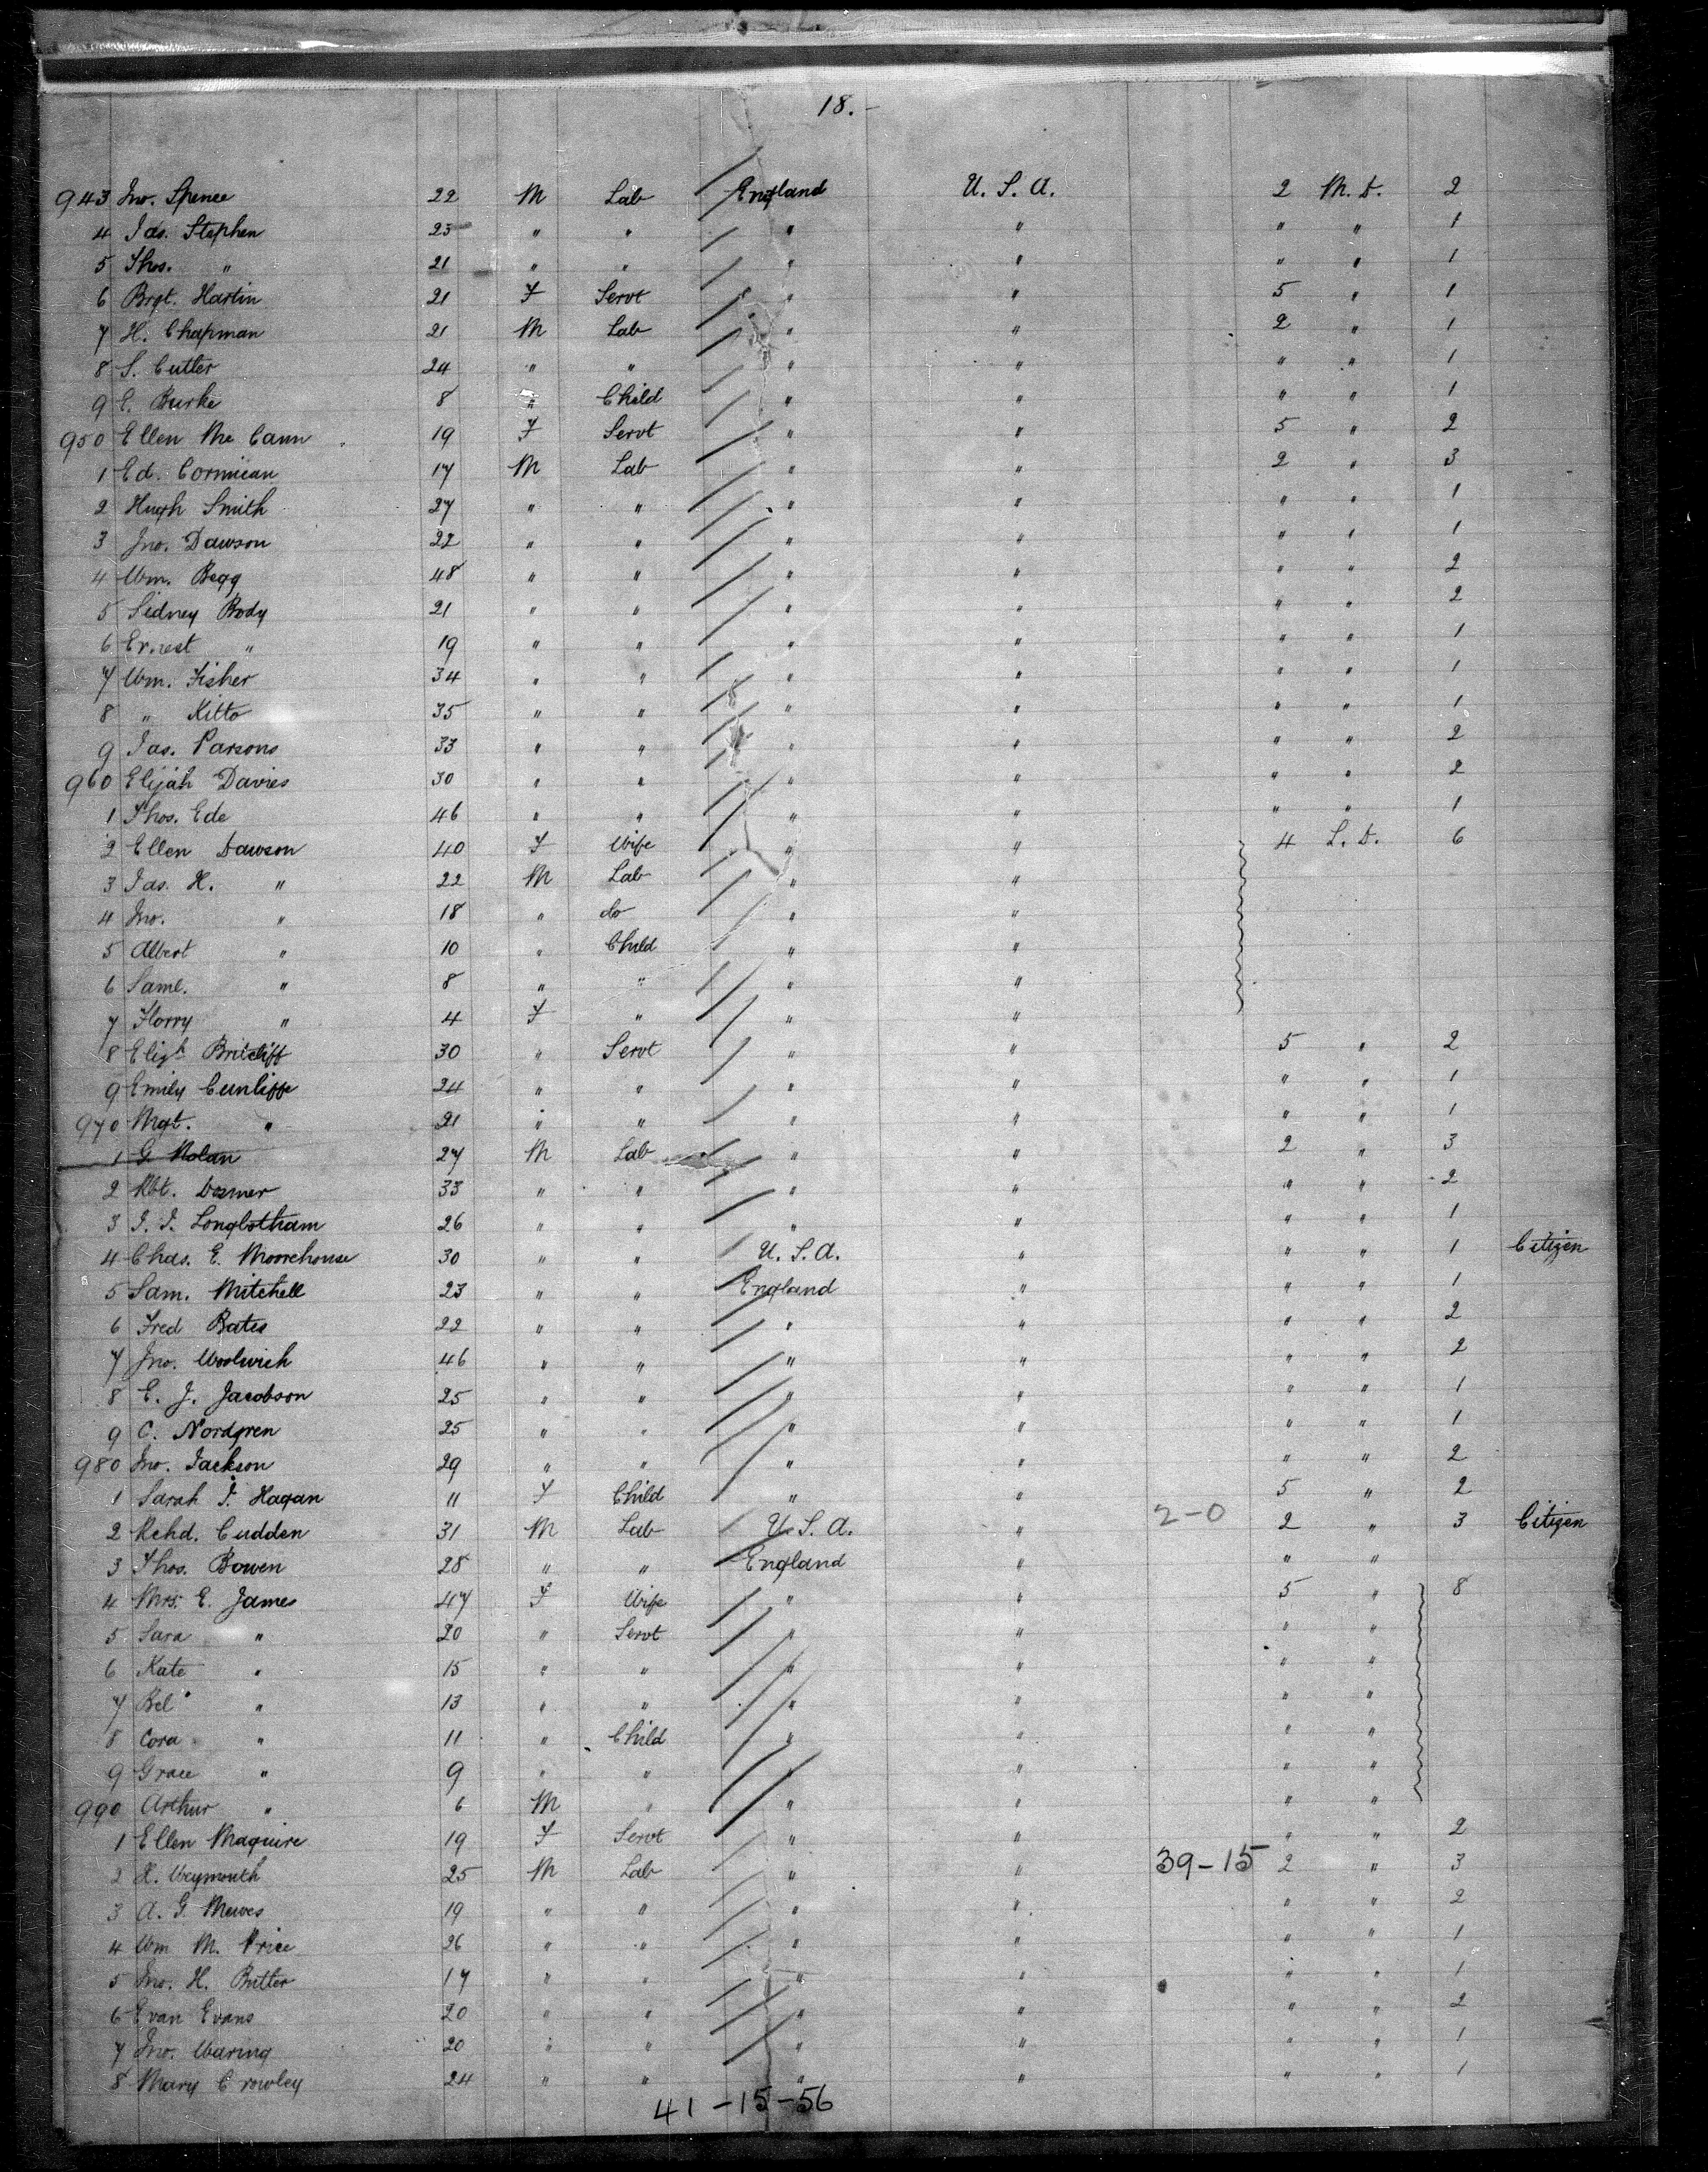 18.-
943 Jno. Spence 22 M Lab England U. S. A. 2 M. D. 2
4 Jas. Stephen 25 " " " " " " 1
5 Thos. " 21 " " " " " " 1
6 Brgt. Hartin 21 F Servt " " 5 " 1
7 H. Chapman 21 M Lab " " 2 " 1
8 S. Cutler 24 " " " " " " 1
9 E. Burke 8 " Child " " " " 1
950 Ellen Mc Cann 19 F Servt " " 5 " 2
1 Ed. Cormican 17 M Lab " " 2 " 3
2 Hugh Smith 27 " " " " " " 1
3 Jno. Dawson 22 " " " " " " 1
4 Wm. Begg 48 " " " " " " 2
5 Sidney Body 21 " " " " " " 2
6 Ernest " 19 " " " " " " 1
7 Wm. Fisher 34 " " " " " " 1
8 " Kitto 35 " " " " " " 1
9 Jas. Parsons 33 " " " " " " 2
960 Elijah Davies 30 " " " " " " 2
1 Thos. Ede 46 " " " " " " 1
2 Ellen Dawson 40 F Wife " " 4 L. D. 6
3 Jas. H. " 22 M Lab " "
4 Jno. " 18 " do " "
5 Albert " 10 " Child " "
6 Saml. " 8 " " " "
7 Florry " 4 F " " "
8 Eligh Britcliff 30 " Servt " " 5 " 2
9 Emily Cunliffe 24 " " " " " " 1
970 Mgt. " 21 " " " " " " 1
1 G. Nolan 27 M Lab " " 2 " 3
2 Rbt. Dosmer 33 " " " " " " 2
3 J. J. Longbotham 26 " " " " " " 1
4 Chas. E. Moorehouse 30 " " U. S. A. " " " 1 Citizen
5 Sam. Mitchell 23 " " England " " " 1
6 Fred Bates 22 " " " " " " 2
7 Jno. Woolwich 46 " " " " " " 2
8 E. J. Jacobson 25 " " " " " " 1
9 C. Nordgren 25 " " " " " " 1
980 Jno. Jackson 29 " " " " " " 2
1 Sarah J. Hagan 11 F Child " " 5 " 2
2 Rchd. Cudden 31 M Lab U. S. A. " 2-0 2 " 3 Citizen
3 Thos. Bowen 28 " " England " " "
4 Mrs. E. James 47 F Wife " " 5 " 8
5 Sara " 20 " Servt " " " "
6 Kate " 15 " " " " " "
7 Bel " 13 " " " " " "
8 Cora " 11 " Child " " " "
9 Grace " 9 " " " " " "
990 Arthur " 6 M " " " " "
1 Ellen Maguire 19 F Servt " " " " 2
2 H. Weymouth 25 M Lab " " 39-15 2 " 3
3 A. G. Mewes 19 " " " " " " 2
4 Wm M. Price 26 " " " " " " 1
5 Jno. H. Butler 17 " " " " " " 1
6 Evan Evans 20 " " " " " " 2
7 Jno. Waring 20 " " " " " " 1
8 Mary Crowley 24 " " " " " " 1
41-15-56